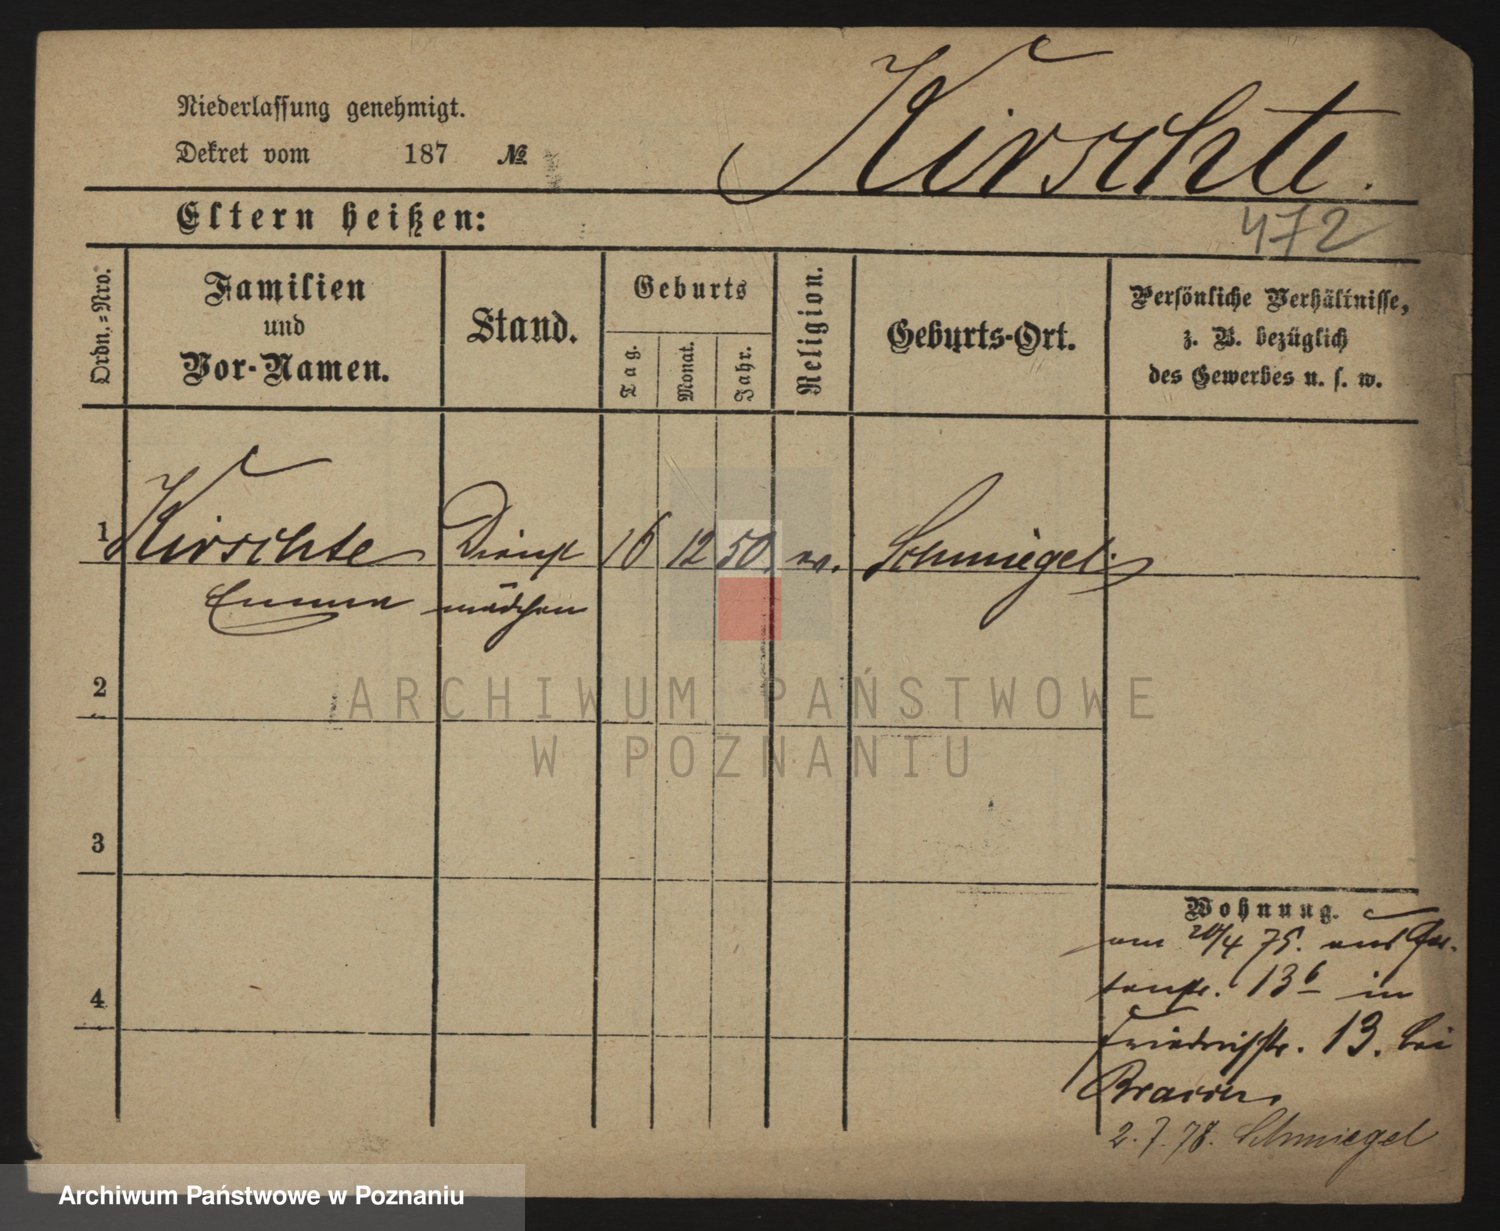 Niederlassung genehmigt.
Dekret vom 187 №
Kirschte.
472
Eltern heißen:
Ordn.-Nro.
Familien
und
Vor-Namen.
Stand.
Geburts
Tag.
Monat.
Jahr.
Religion.
Geburts-Ort.
Persönliche Verhältnisse,
z. B. bezüglich
des Gewerbes u. s. w.
1 Kirschte Dienst 16 12 50. ev. Schmiegel.
Emma mädchen
2
ARCHIWUM PAŃSTWOWE
W POZNANIU
3
Wohnung.
am 20/4 75. aus Gar-
tenstr. 13 6 in
4
Friedrichstr. 13. bei
2.7.78. Schmiegel
Archiwum Państwowe w Poznaniu